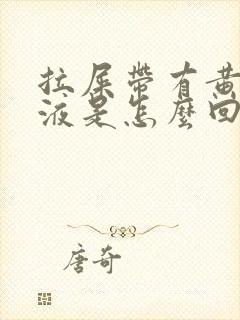 拉屎帶有黃
液是怎麼回
唐奇